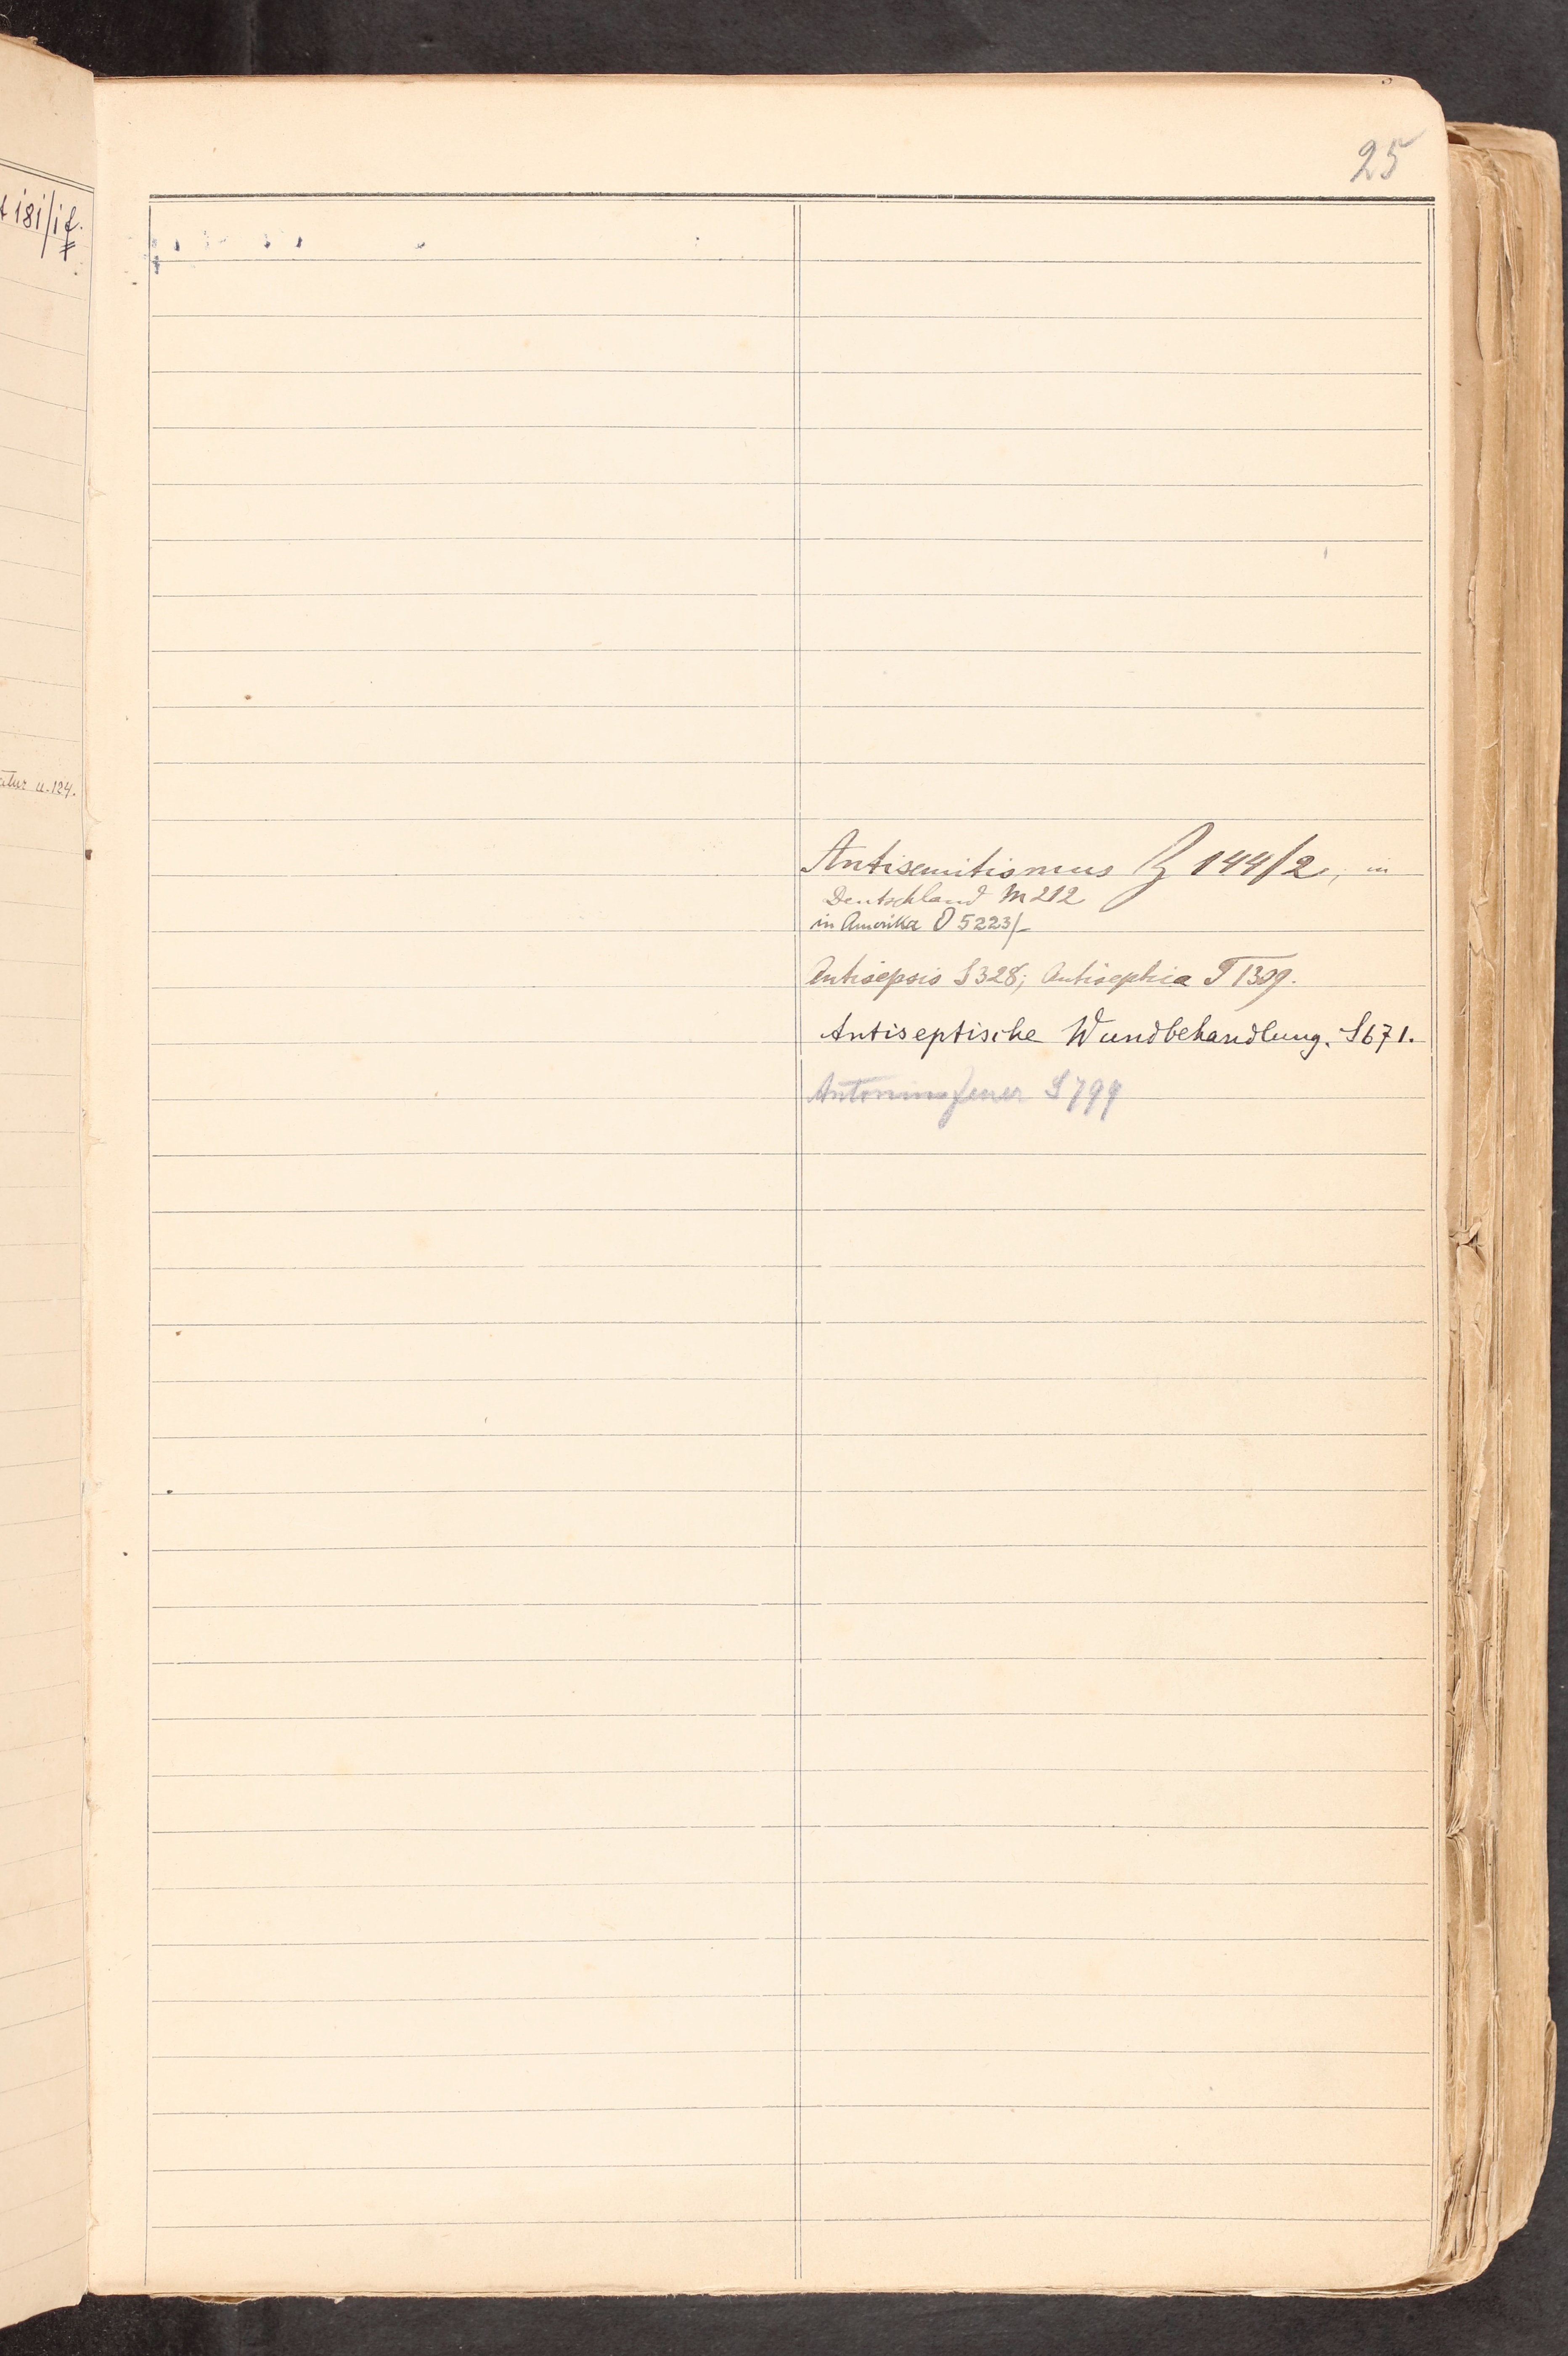 25
181/1
atur u. 124.
Antisemitismus Z 144/2, in
Deutschland M 212
in Amerika O 5223/-
Antisepsis S 328; Antiseptica T 1309.
Antiseptische Wundbehandlung. S 671.
Antoniusfeuer S 799